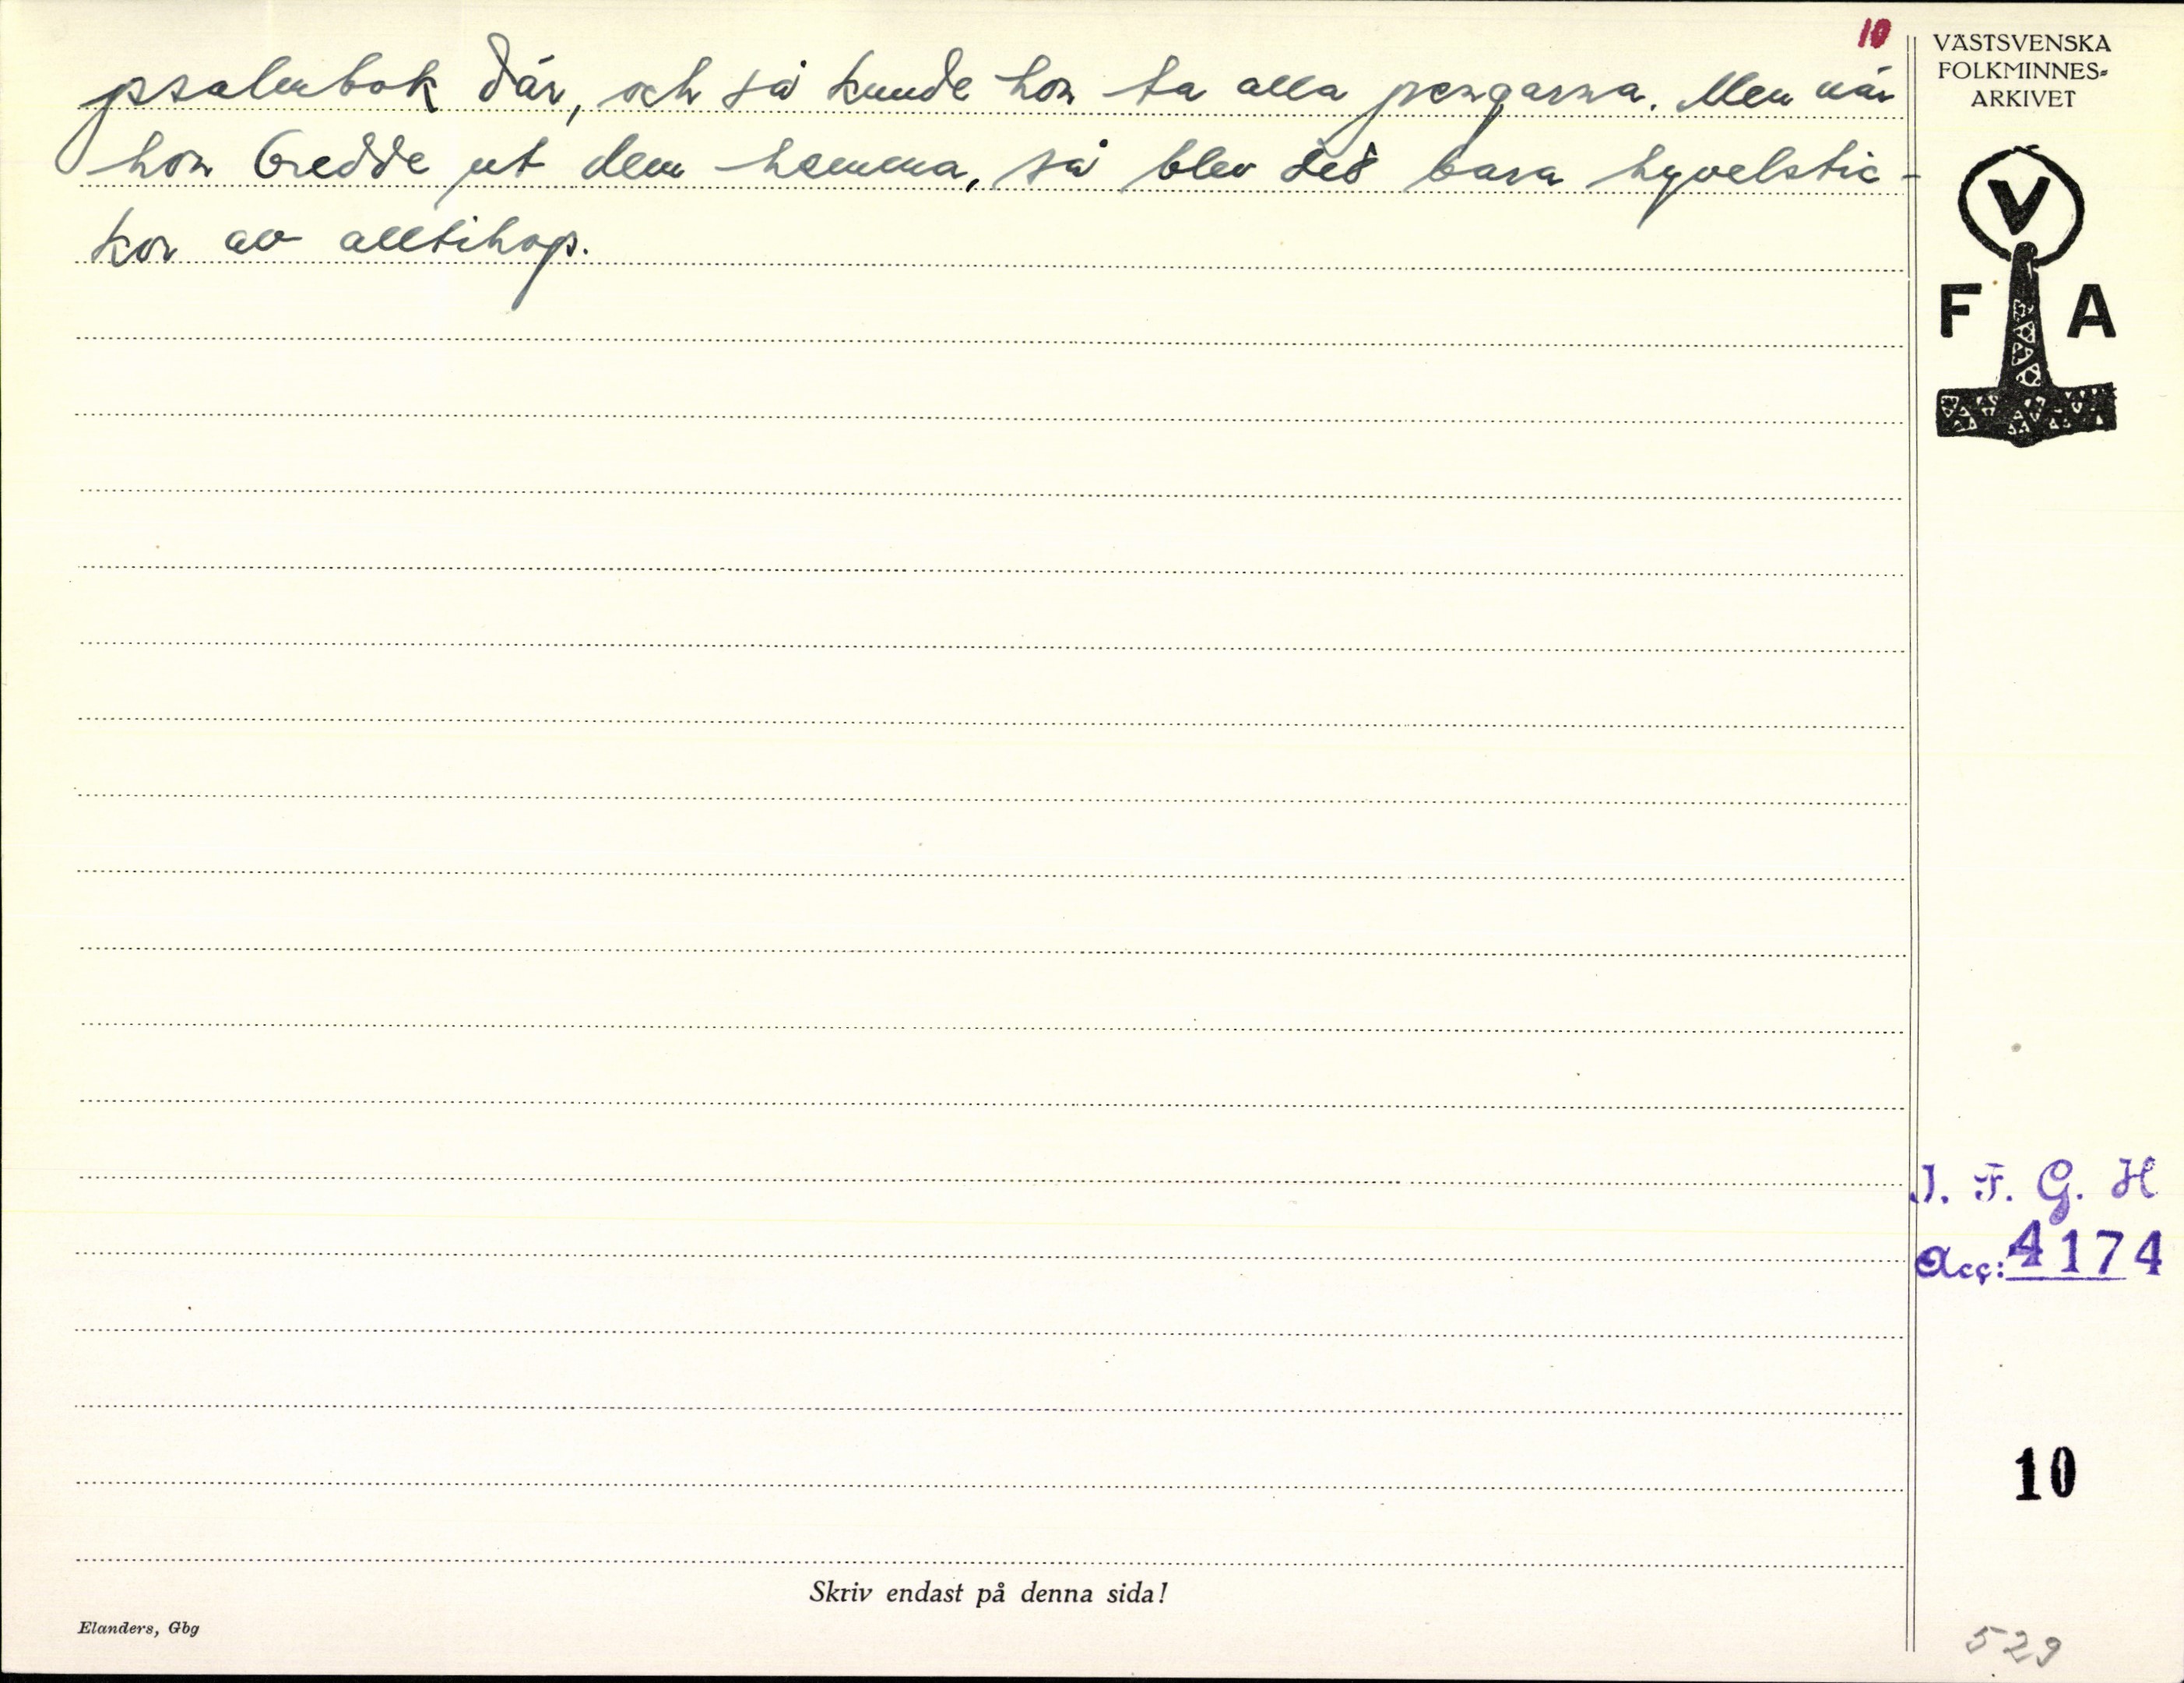 10
psalmbok där, och så kunde hon ta alla pengarna. Men när
hon bredde ut dem hemma, så blev det bara hyvelstic-
kor av alltihop.
VÄSTSVENSKA
FOLKMINNES-
ARKIVET
V
F A
I. F. G. H
Acc: 4174
10
Skriv endast på denna sida!
Elanders, Gbg
529